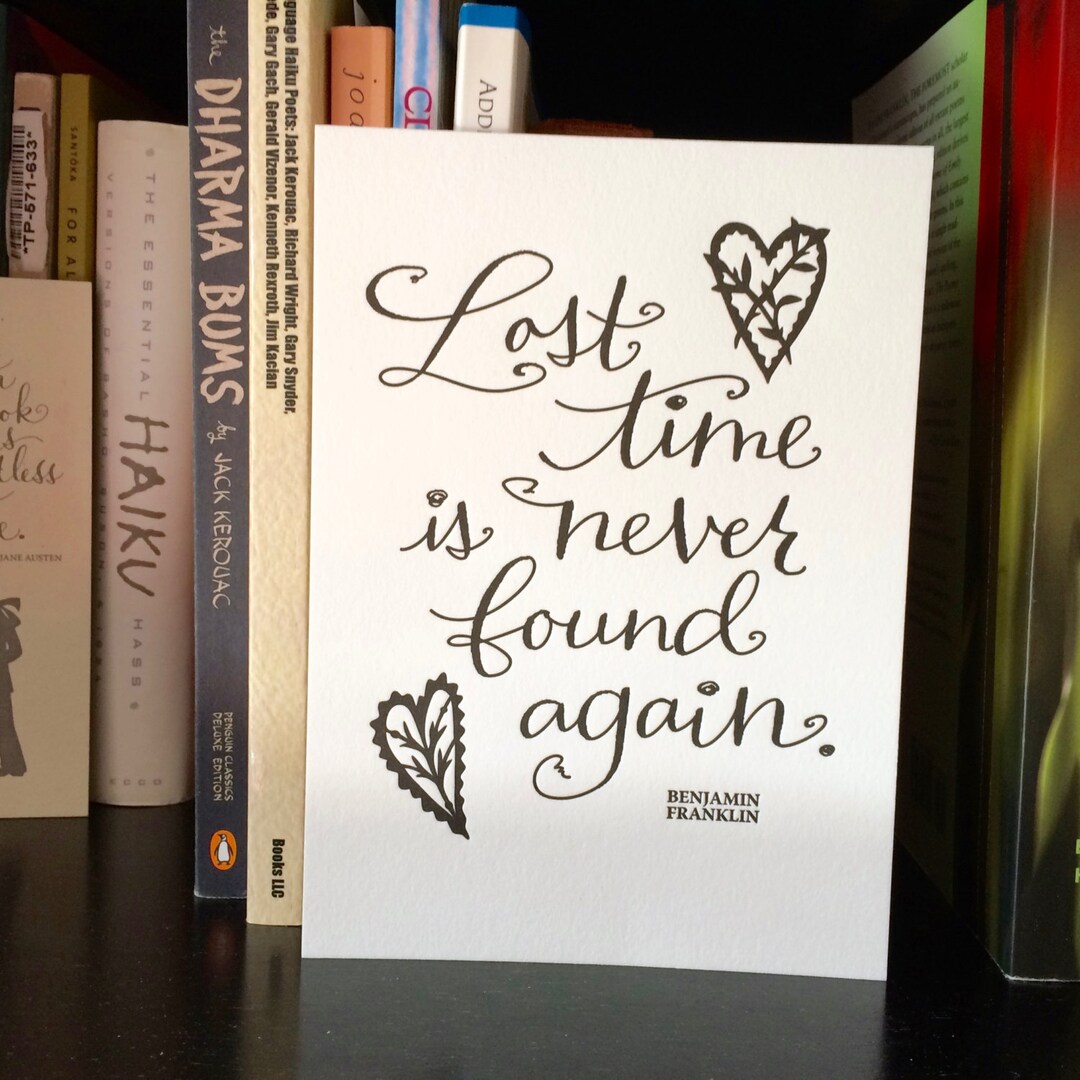 Lost
time
is never
found
again.
BENJAMIN
FRANKLIN
the DHARMA BUMS by JACK KEROUAC
PENGUIN CLASSICS
DELUXE EDITION
guage Haiku Poets: Jack Kerouac, Richard Wright, Gary Snyder,
de, Gary Gach, Gerald Vizenor, Kenneth Rexroth, Jim Kacian
Books LLC
THE ESSENTIAL HAIKU HASS
VERSIONS OF BASHO, BUSON & ISSA
SANTOKA FOR AL
*TP-571-633*
joa
CI
ADD
ok
s
tless
e.
JANE AUSTEN